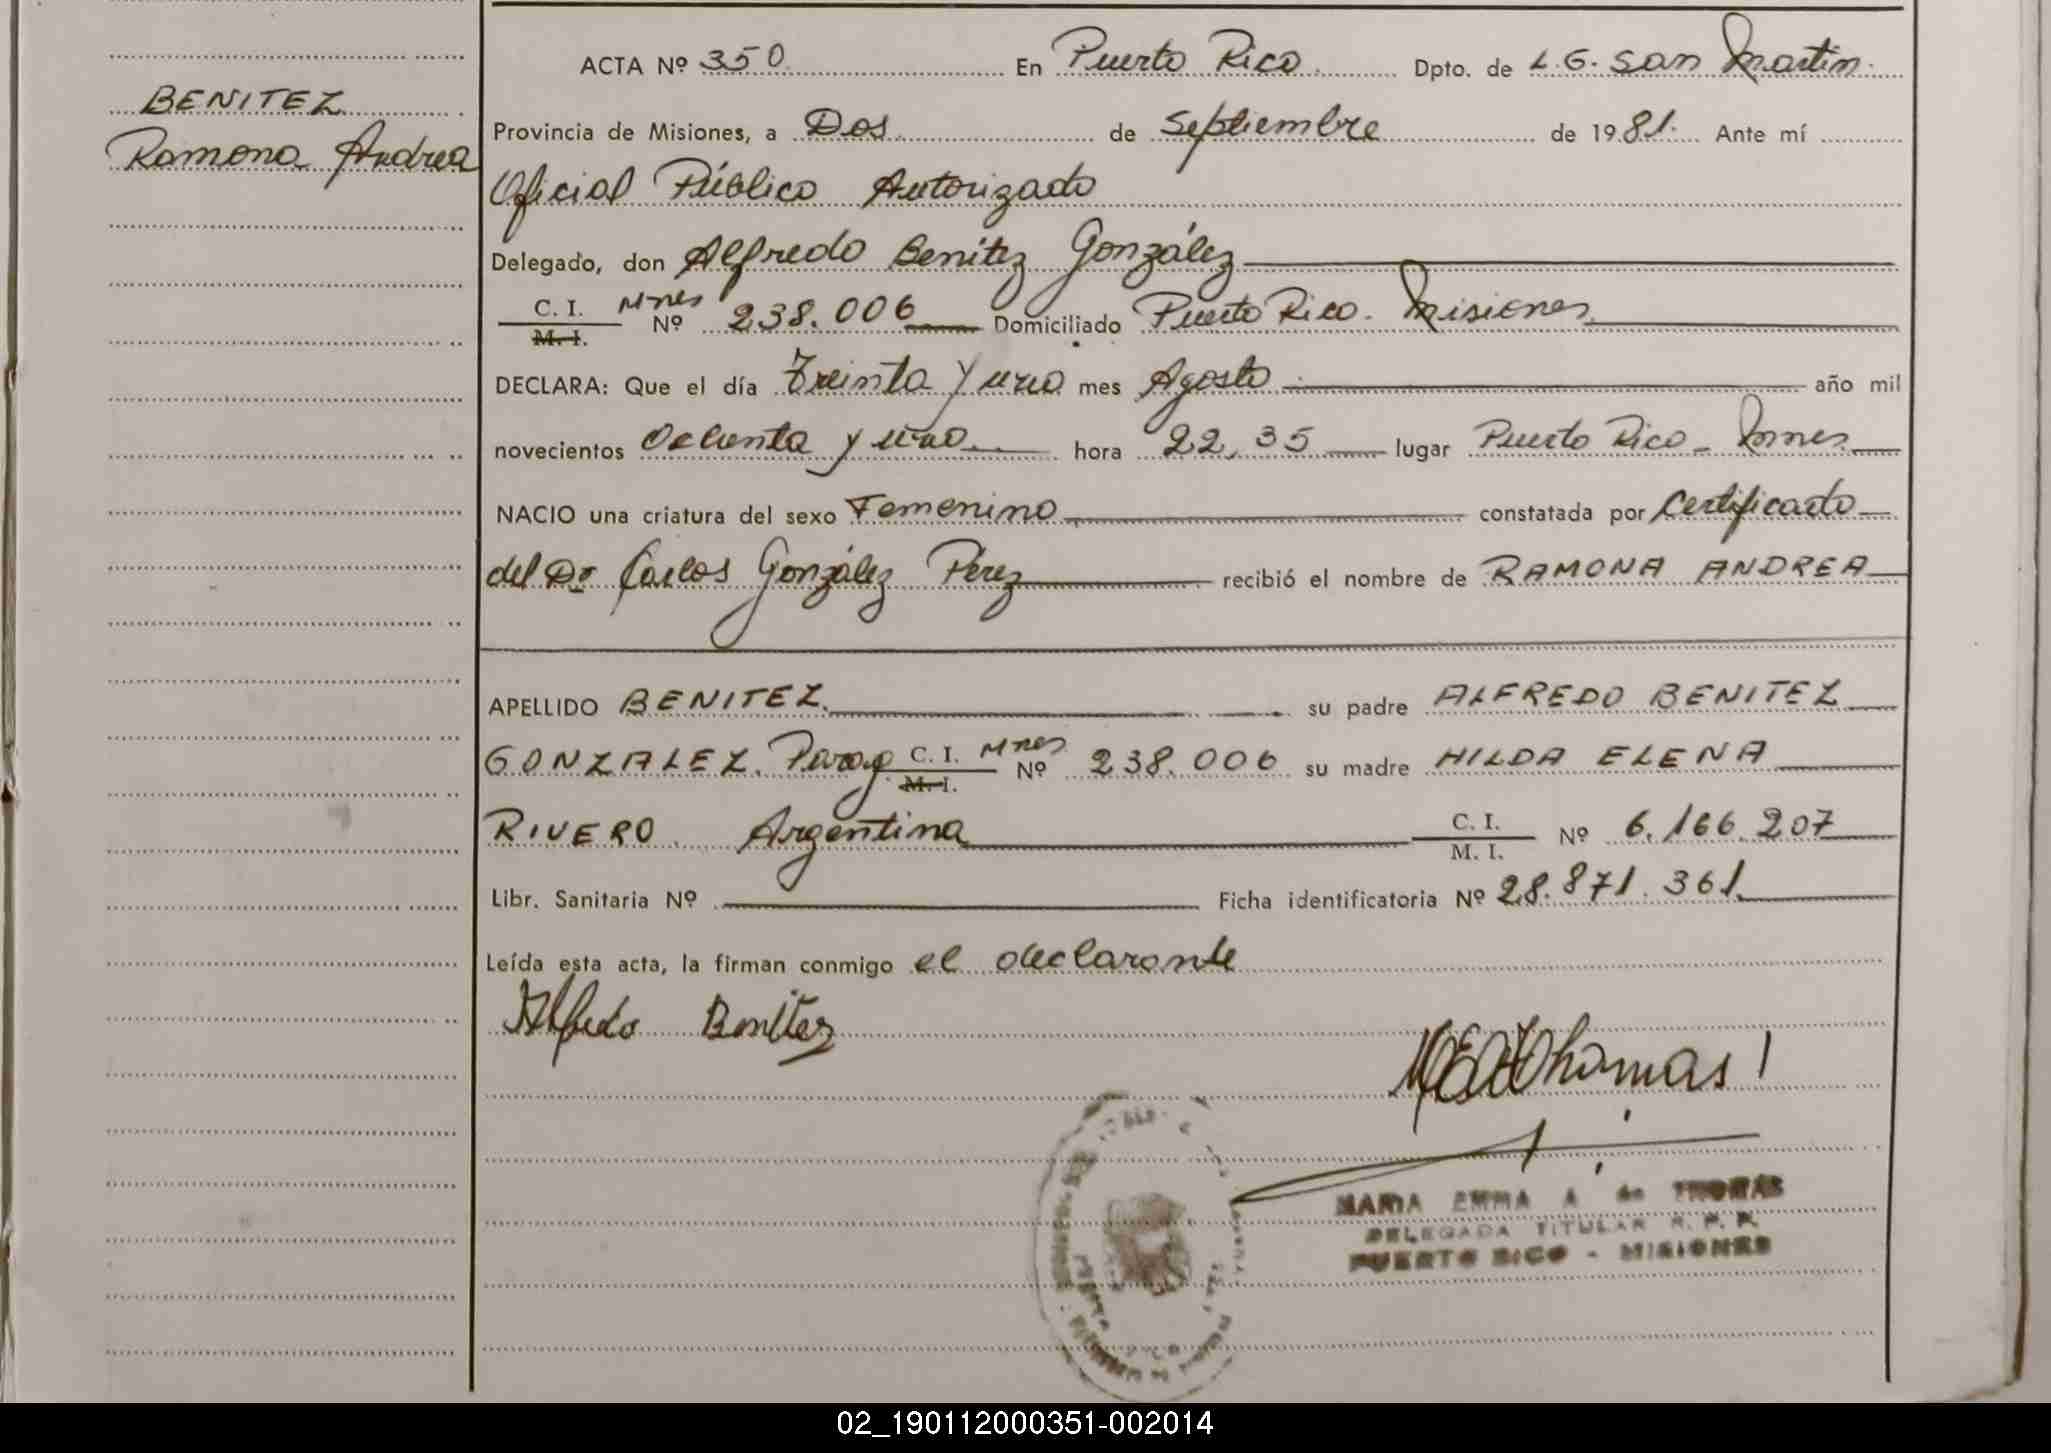 ACTA Nº 350 En Puerto Rico Dpto. de L.G. San Martin.
BENITEZ
Ramona Andrea
Provincia de Misiones, a Dos de Septiembre de 1981. Ante mí
Oficial Público Autorizado
Delegado, don Alfredo Benítez González
C. I. Mnes
M. I. Nº 238.006 Domiciliado Puerto Rico. Misiones
DECLARA: Que el día Treinta y uno mes Agosto año mil
novecientos Ochenta y uno hora 22,35 lugar Puerto Rico - Mnes
NACIO una criatura del sexo Femenino constatada por Certificado
del Dr Carlos González Pérez recibió el nombre de RAMONA ANDREA
APELLIDO BENITEZ. su padre ALFREDO BENITEZ
GONZALEZ. Parag C. I. Mnes
M. I. Nº 238.006 su madre HILDA ELENA
RIVERO. Argentina C. I.
M. I. Nº 6.166.207
Libr. Sanitaria Nº Ficha identificatoria Nº 28.871.361
Leída esta acta, la firman conmigo el declarante
Alfredo Benítez
MEAThomas
MARIA EMMA A de THOMAS
DELEGADA TITULAR R. P. P.
PUERTO RICO - MISIONES
02_190112000351-002014